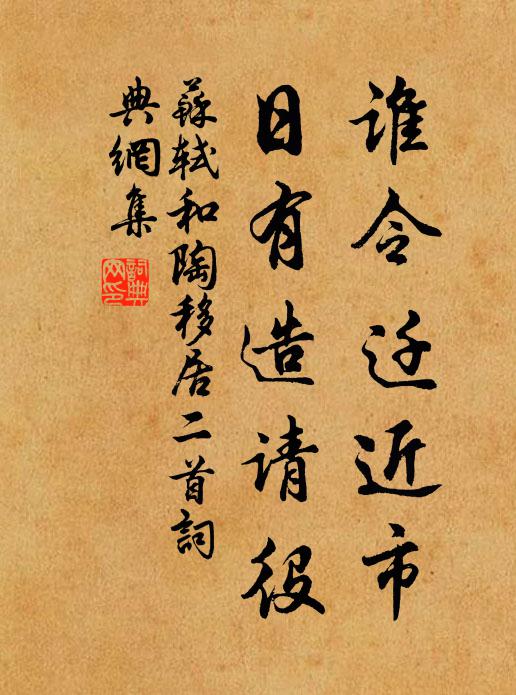 谁令迁近市
日有造请役
蘇軾和陶移居二首詞
典網集
詞典
网印